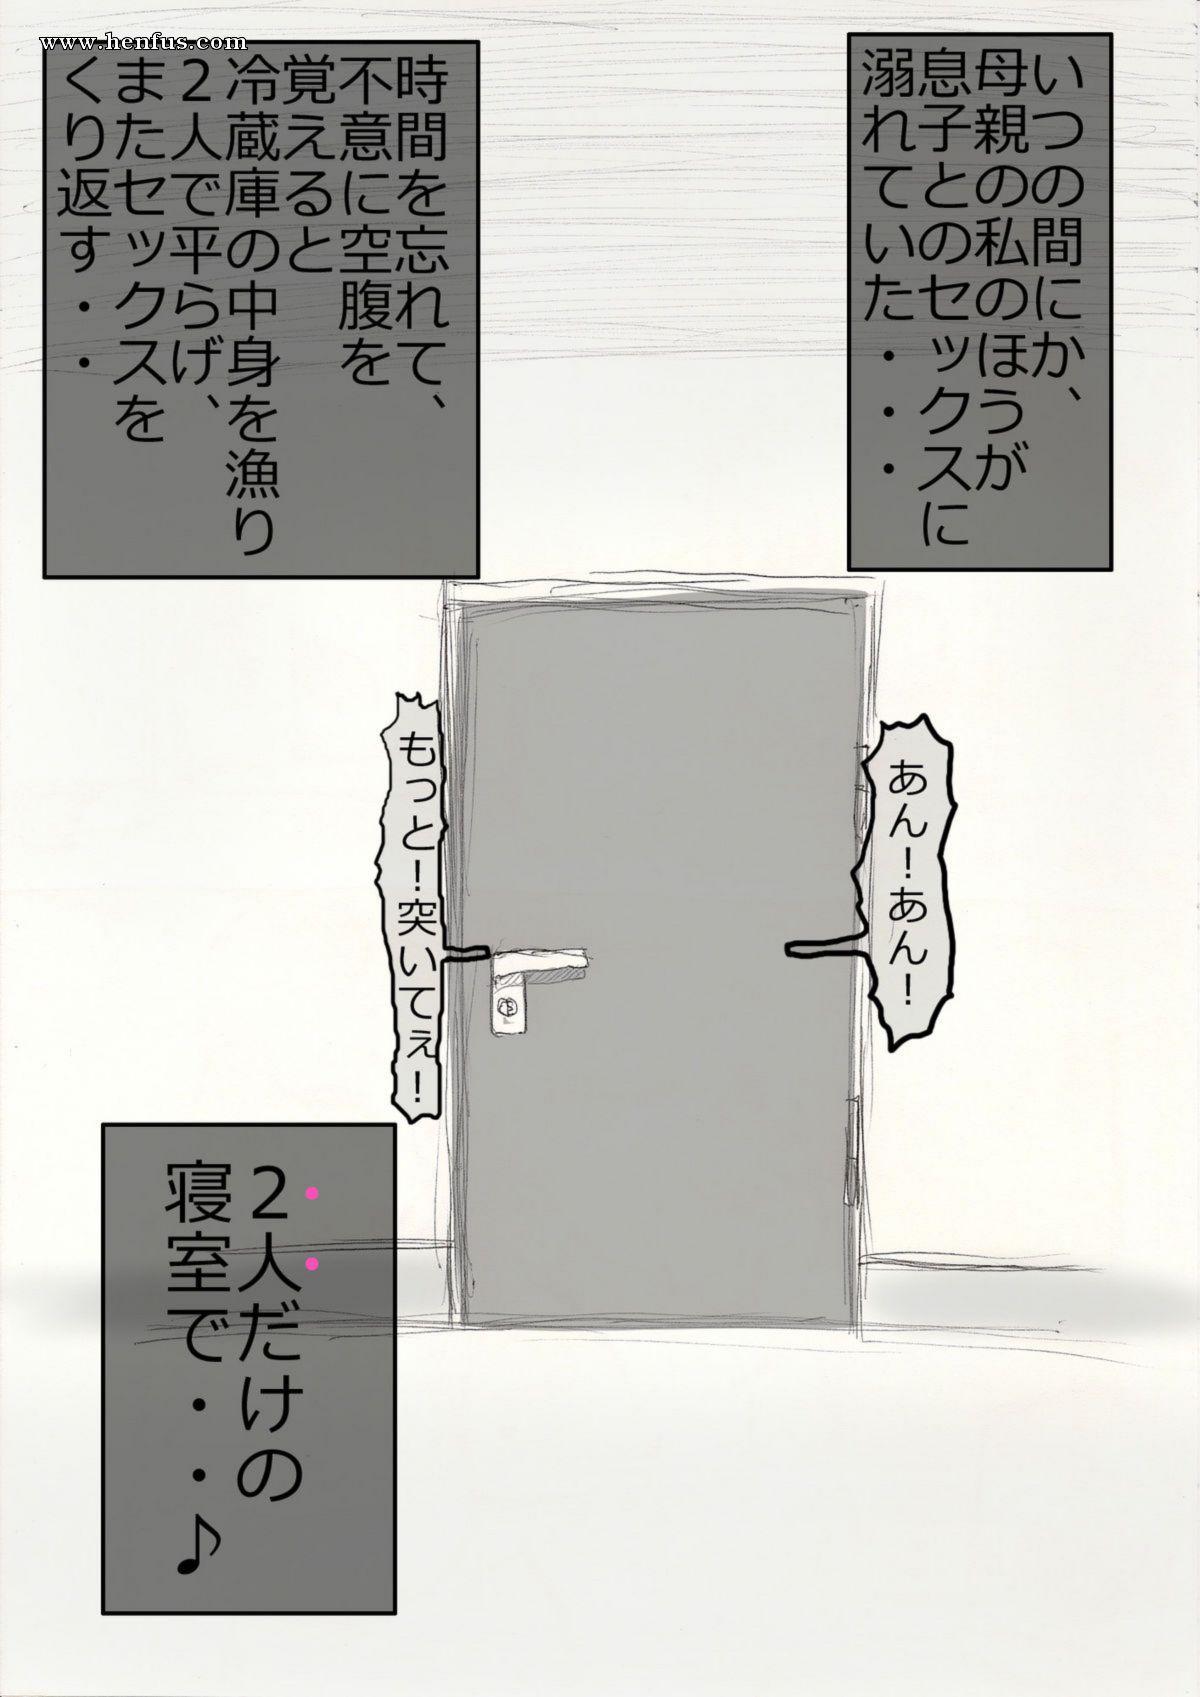 www.henfus.com
いつの間にか、
母親の私のほうが
息子とのセックスに
溺れていた・・・
時間を忘れて、
不意に空腹を
覚えると
冷蔵庫の中身を漁り
2人で平らげ、
またセックスを
くり返す・・
あん!あん!
もっと!突いてぇ!
2人だけの
寝室で・・・♪